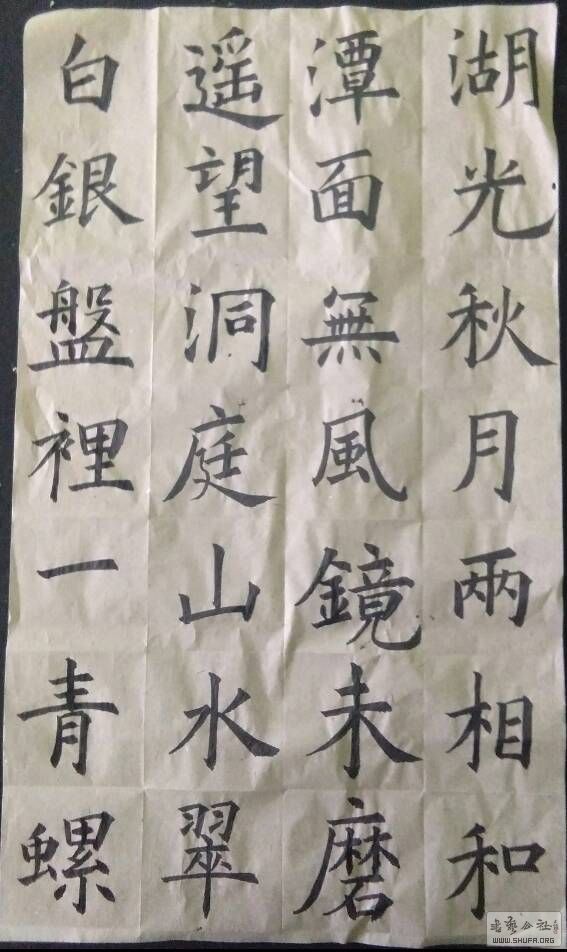 湖光秋月兩相和
潭面無風鏡未磨
遥望洞庭山水翠
白銀盤裡一青螺
WWW.SHUFA.ORG